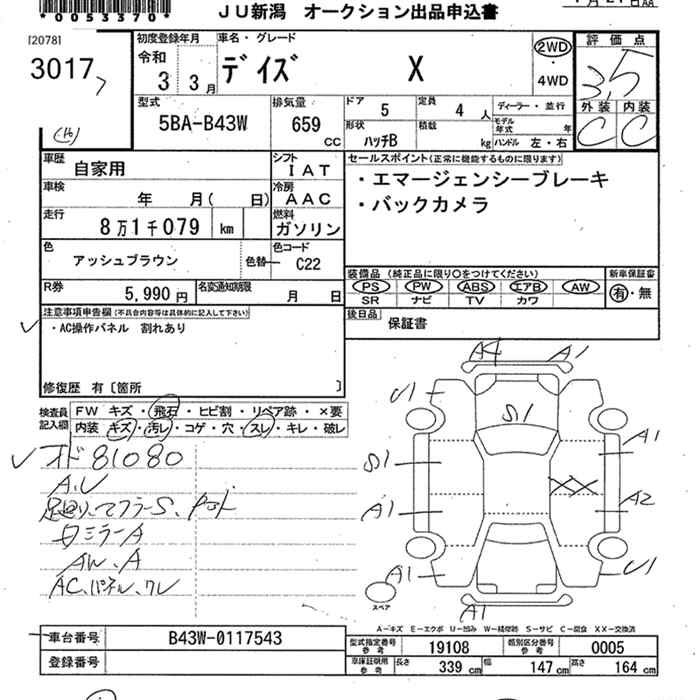 *0053370*
JU新潟 オークション出品申込書
[2078]
3017
初度登録年月
令和
3 3月
車名・グレード
デイズ X
2WD
・
4WD
評価点
3.5
外装 内装
C C
型式
5BA-B43W
排気量
659
CC
ドア 5
定員 4 人
形状 ハッチB
積載 kg
ディーラー・並行
モデル年式 年
ハンドル 左・右
車歴
自家用
シフト
IAT
車検
年 月( 日)
冷房
AAC
走行
8万1千079 km
燃料
ガソリン
色
アッシュブラウン
色替
色コード
C22
R券
5,990円
名変通知期限
月 日
セールスポイント(正常に機能するものに限ります)
・エマージェンシーブレーキ
・バックカメラ
装備品(純正品に限り○をつけてください)
PS PW ABS エアB AW
SR ナビ TV カワ
新車保証書
有・無
後日品
保証書
注意事項申告欄(不具合内容等は具体的に記入して下さい)
・AC操作パネル 割れあり
修復歴 有〔箇所 〕
検査員
記入欄
FW キズ・飛石・ヒビ割・リペア跡・×要
内装 キズ・汚レ・コゲ・穴・スレ・キレ・破レ
オド 81080
A.U
足廻り、マフラーS、
ミラーA
AW.A
AC.パネル.ワレ
A4 A1
U1
S1
A1
S1
XX
A1
A2
A1
U1
A1
スペア
A-キズ E-エクボ U-凹み W-補修跡 S-サビ C-腐食 XX-交換済
車台番号
B43W-0117543
登録番号
型式指定番号
参考
19108
類別区分番号
参考
0005
車庫証明用
参考
長さ 339 cm
幅 147 cm
高さ 164 cm